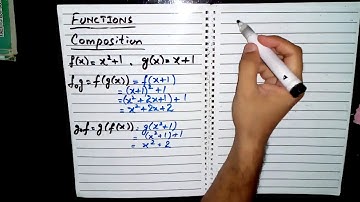 FUNCTIONS
Composition
f(x) = x²+1 , g(x) = x+1
fog = f(g(x)) = f(x+1)
= (x+1)²+1
= (x²+2x+1)+1
= x²+2x+2
gof = g(f(x)) = g(x²+1)
= (x²+1)+1
= x²+2